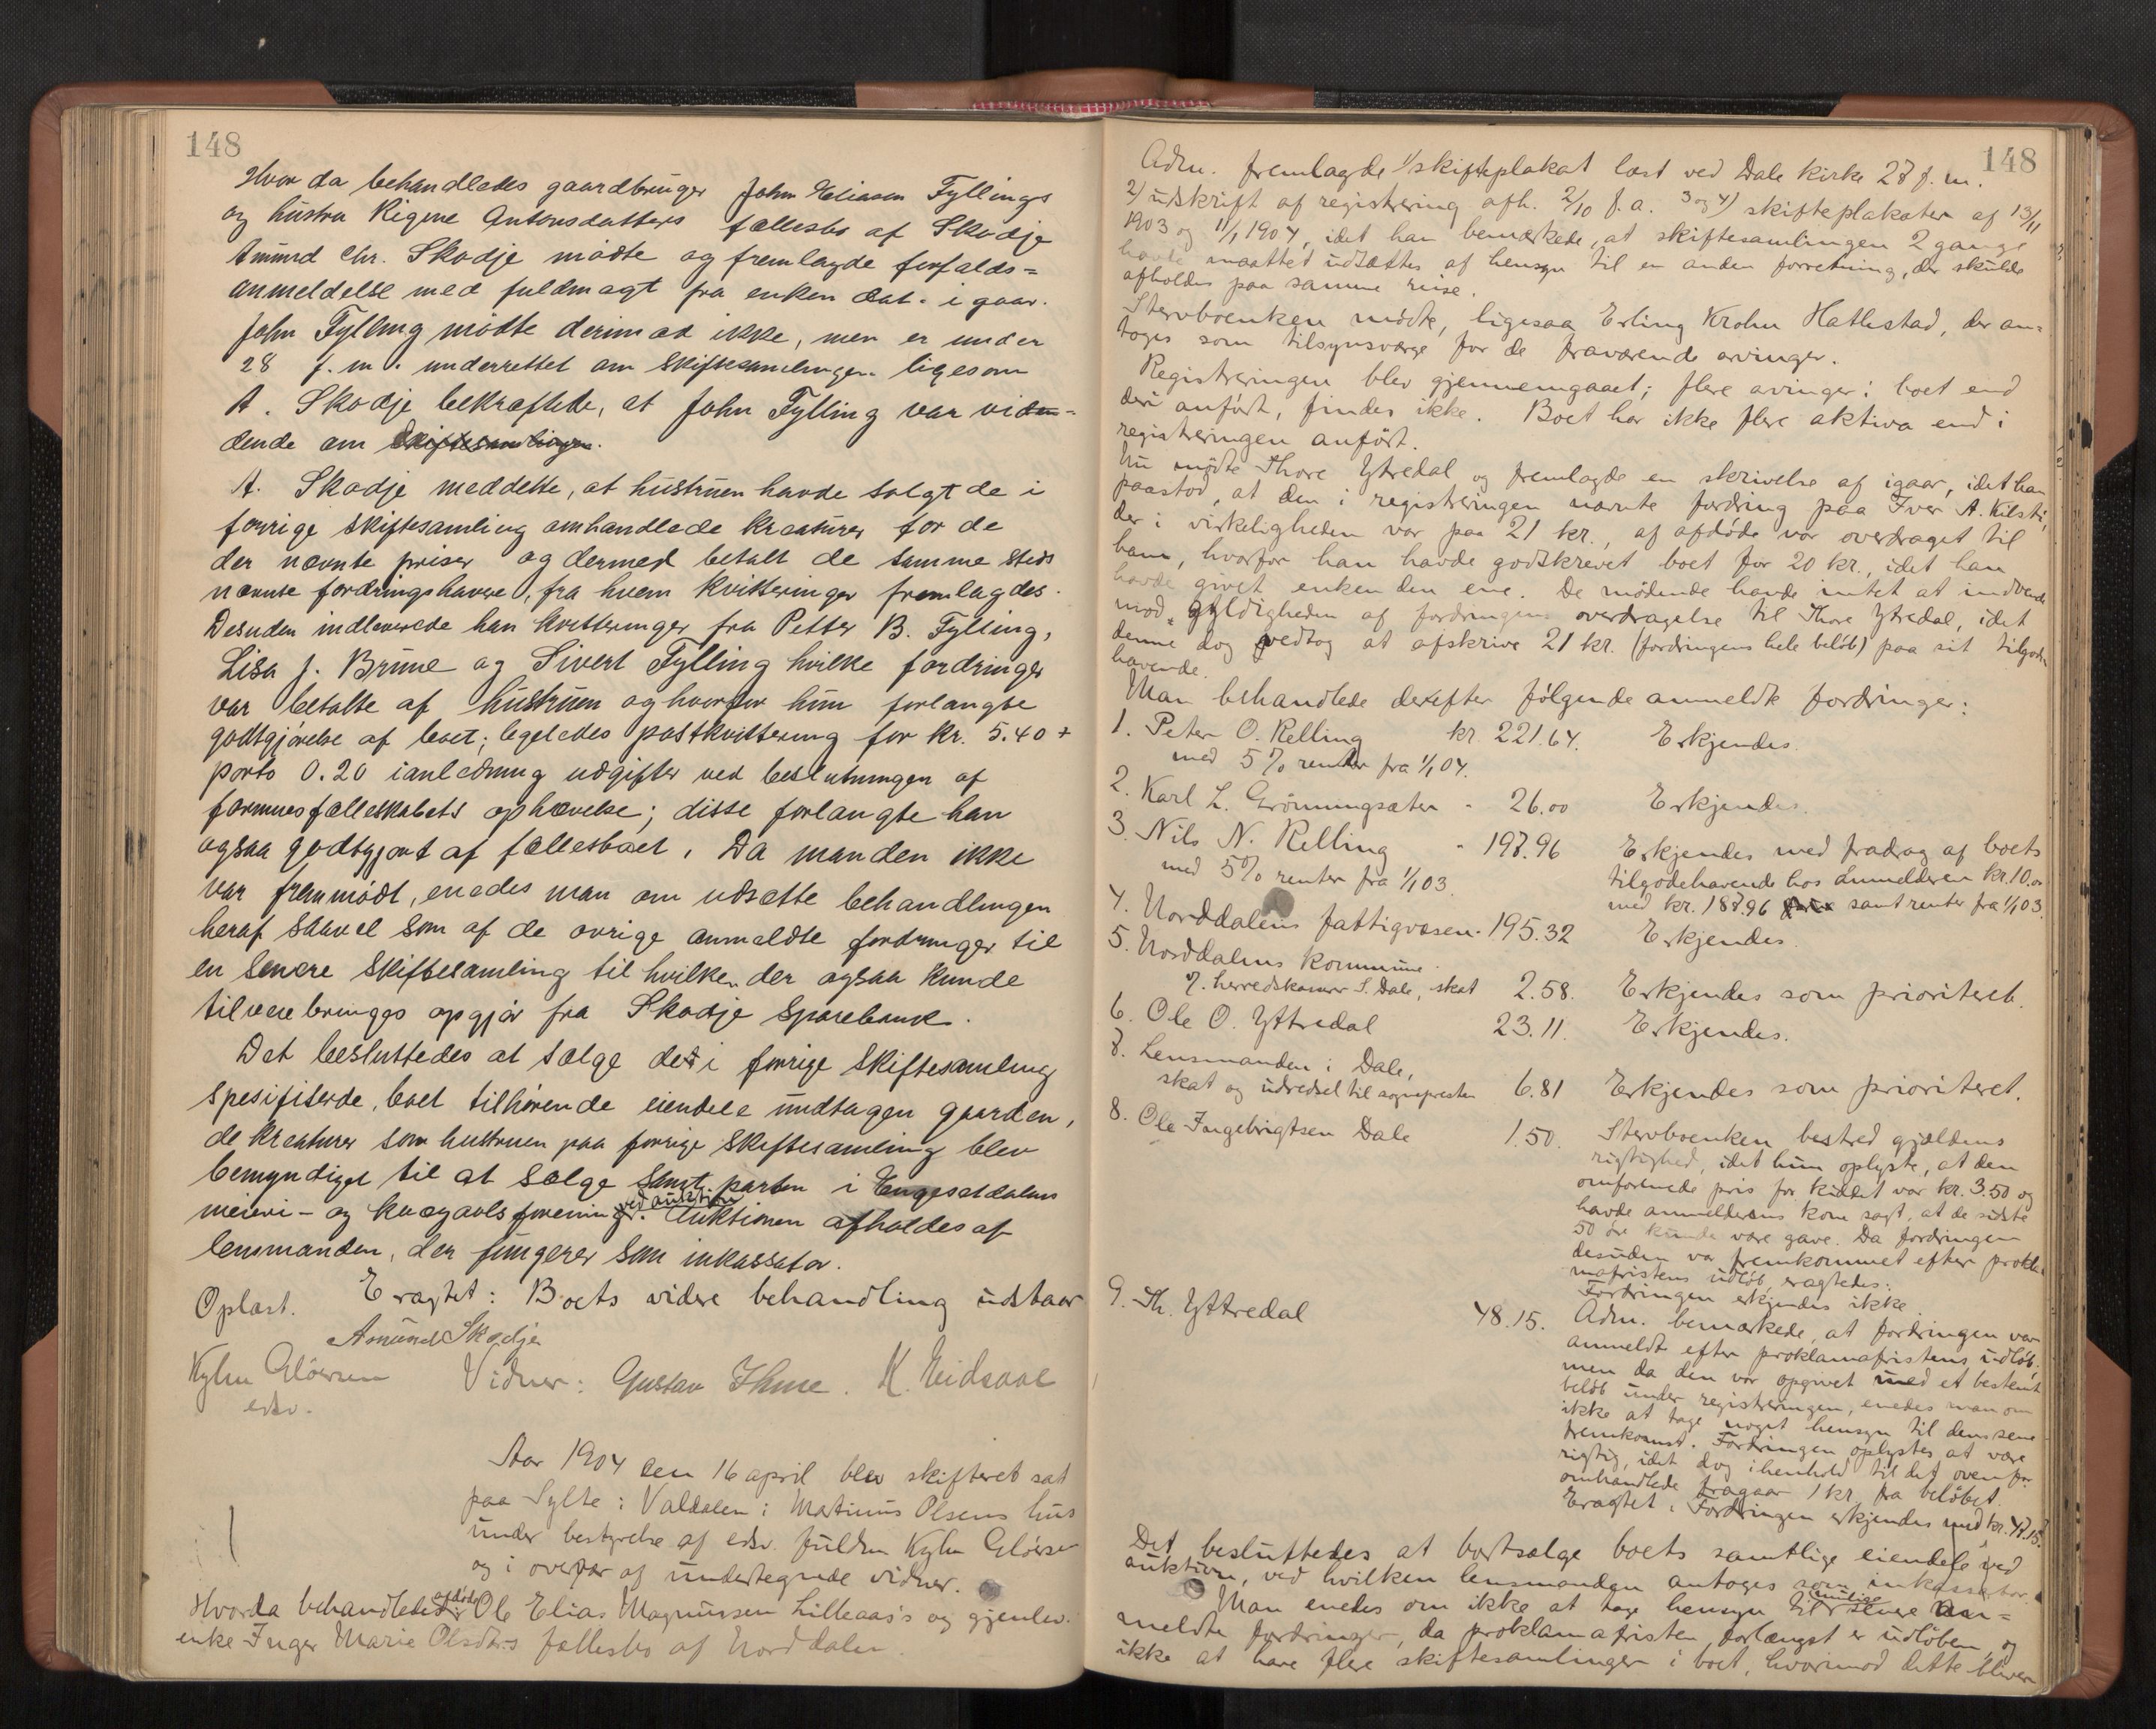 148
Hvor da behandledes gaardbruger John Eliasen Fyllings
og hustru Rigene Antonsdatters fællesbo af Skodje
Amund Chr. Skodje mødte og fremlagde forfalds=
anmeldelse med fuldmagt fra enken dat. i gaar.
John Fylling mødte derimod ikke, men er under
28 f. m. underrettet om skiftesamlingen ligesom
A. Skodje bekræftede, at John Fylling var viden=
dende om skiftesamlingen.
A. Skodje meddelte, at hustruen havde solgt de i
forrige skiftesamling omhandlede kreaturer for de
der nævnte priser og dermed betalt de samme steds
nævnte fordringshavere, fra hvem kvitteringer fremlagdes.
Desuden indleverede han kvitteringer fra Petter B. Fylling,
Lisa J. Brune og Sivert Fylling hvilke fordringer
var betalte af hustruen og hvorfor hun forlangte
godtgjørelse af boet; ligeledes postkvittering for kr. 5.40 +
porto 0.20 i anledning udgifter ved beslutningen af
formuesfælleskabets ophævelse; disse forlangte han
ogsaa godtgjort af fællesboet. Da manden ikke
var fremmødt, enedes man om udsætte behandlingen
heraf saavel som af de øvrige anmeldte fordringer til
en senere skiftesamling til hvilken der ogsaa kunde
tilveiebringes opgjør fra Skodje Sparebank.
Det besluttedes at sælge de i forrige skiftesamling
spesifiserde, boet tilhørende eiendele undtagen gaarden,
de kreaturer som hustruen paa forrige skiftesamling blev
bemyndiget til at sælge samt parten i Engesetdalens
meieri- og kvægavlsforening ved auktion. Auktionen afholdes af
lensmanden, der fungerer som inkassator.
Eragtet: Boets videre behandling udstaar
Oplæst.
Amund Skodje
Kyhn Gløersen Vidner: Gustav Ihme. K. Eidsaae
edsv.
Aar 1904 den 16 april blev skifteret sat
paa Sylte i Valdalen i Martinus Olsens hus
under bestyrelse af edsv. fuldm Kyhn Gløersen
og i overvær af undertegnede vidner.
Hvorda behandledes afdøde Ole Elias Magnussen Lilleaas's og gjenlev.
enke Inger Marie Olsdrs fællesbo af Norddalen
148
Adm. fremlagde 1/ skifteplakat læst ved Dale kirke 27 f. m.
2/ udskrift af registrering afh. 2/10 f. a. 3 og 4) skifteplakater af 13/11
1903 og 11/1 1904, idet han bemærkede, at skiftesamlingen 2 gange
havde maattet udsættes af hensyn til en anden forretning, der skulde
afholdes paa samme reise.
Stervboenken mødte, ligesaa Erling Krohn Hatlestad, der an=
toges som tilsynsværge for de fraværende arvinger.
Registreringen blev gjennemgaaet; flere arvinger i boet end
deri anført, findes ikke. Boet har ikke flere aktiva end i
registreringen anført.
Nu mødte Thore Ytredal og fremlagde en skrivelse af igaar, idet han
paastod, at den i registreringen nævnte fordring paa Iver A. Kilsti,
der i virkeligheden var paa 21 kr., af afdøde var overdraget til
ham, hvorfor han havde godskrevet boet for 20 kr., idet han
havde givet enken den ene. De mødende havde intet at indvende
mod gyldigheden af fordringens overdragelse til Thore Ytredal, idet
denne dog vedtog at afskrive 21 kr. (fordringens hele beløb) paa sit tilgode
havende.
Man behandlede derefter følgende anmeldte fordringer:
1. Peter O. Relling kr. 221.64. Erkjendes.
med 5% renter fra 1/1 04.
2. Karl L. Grønningsæter - 26.00 Erkjendes.
3. Nils N. Relling - 197.96 Erkjendes med fradrag af boets
med 5% renter fra 1/1 03. tilgodehavende hos anmelderen kr. 10.00
med kr. 187.96 samt renter fra 1/1 03.
4. Norddalens fattigvæsen - 195.32 Erkjendes.
5. Norddalens kommune
v/ herredskasserer S. Dale, skat 2.58. Erkjendes som prioriteret.
6. Ole O. Yttredal 23.11. Erkjendes.
7. Lensmanden i Dale,
skat og udredsel til sognepresten 6.81 Erkjendes som prioriteret.
8. Ole Ingebrigtsen Dale 1.50. Stervboenken bestred gjældens
rigtighed, idet hun oplyste, at den
omforenede pris for kiddet var kr. 3.50 og
havde anmelderens kone sagt, at de sidste
50 øre kunde være gave. Da fordringen
desuden var fremkommet efter prokla-
mafristens udløb, eragtedes:
Fordringen erkjendes ikke.
9. Th. Yttredal 48.15. Adm. bemærkede, at fordringen var
anmeldt efter proklamafristens udløb,
men da den var opgivet med et bestemt
beløb under registreringen, enedes man om
ikke at tage noget hensyn til dens sene
fremkomst. Fordringen oplystes at være
rigtig, idet dog i henhold til det ovenfor
omhandlede fragaar 1 kr. fra beløbet.
Eragtet: Fordringen erkjendes med kr. 47.15.
Det besluttedes at bortsælge boets samtlige eiendele ved
auktion, ved hvilken lensmanden antoges som inkassator.
Man enedes om ikke at tage hensyn til mulige senere an=
meldte fordringer, da proklamafristen forlængst er udløben, og
ikke at have flere skiftesamlinger i boet, hvorimod dette bliver